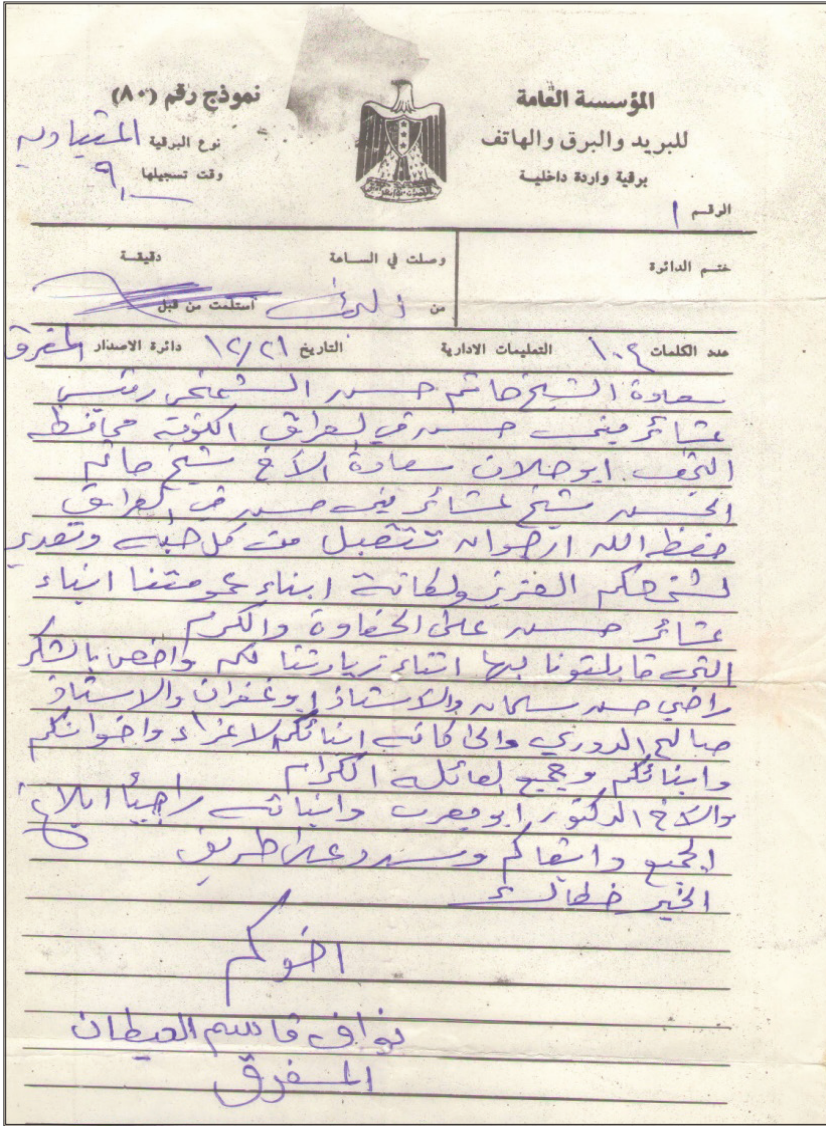 المؤسسة العامة
للبريد والبرق والهاتف
برقية واردة داخلية
الرقم ١
نموذج رقم (٨٠)
نوع البرقية
وقت تسجيلها ٩
ختم الدائرة
وصلت في الساعة
دقيقة
من
استلمت من قبل
عدد الكلمات ١٠٤ التعليمات الادارية التاريخ ١٢/٢١ دائرة الاصدار المفرق
سعادة الشيخ حاتم حسن
عشائر بني حسن في العراق الكوفة محافظة
النجف سعادة الاخ شيخ حاتم
الحسن شيخ عشائر بني حسن في العراق
حفظه الله ارجو ان تتقبل من كل حب وتقدير
لشخصكم العزيز ولكافة ابناء عمومتنا ابناء
عشائر حسن على الحفاوة والكرم
التي قابلتونا بها اثناء زيارتنا لكم واخص بالشكر
راضي حسن سلمان والاستاذ ابو غفران والاستاذ
صالح الدوري والى كافة ابنائكم الاعزاء واخوانكم
وابنائكم وجميع العائلة الكرام
والاخ الدكتور ابو وابنائه راجياً ابلاغ
الجميع وابقاكم وسدد على طريق
الخير خطاكم
اخوكم
نواف قاسم العيطان
المفرق